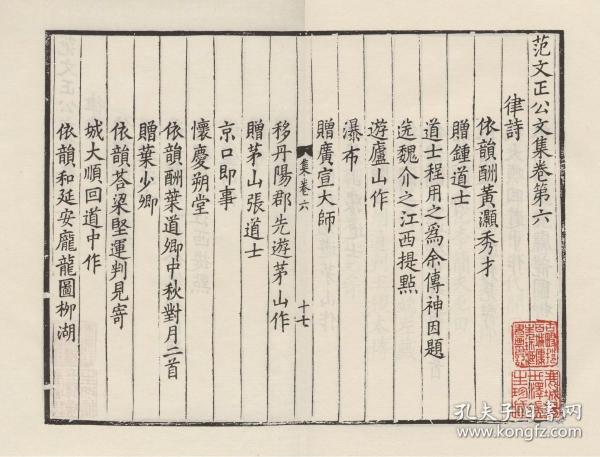 范文正公文集卷第六
律詩
依韻酬黃灝秀才
贈鍾道士
道士程用之爲余傳神因題
送魏介之江西提點
遊廬山作
瀑布
贈廣宣大師
集卷六
十七
移丹陽郡先遊茅山作
贈茅山張道士
京口即事
懷慶朔堂
依韻酬葉道卿中秋對月二首
贈葉少卿
依韻荅梁堅運判見寄
城大順回道中作
依韻和延安龐龍圖柳湖
孔夫子旧书网
www.kongfz.com